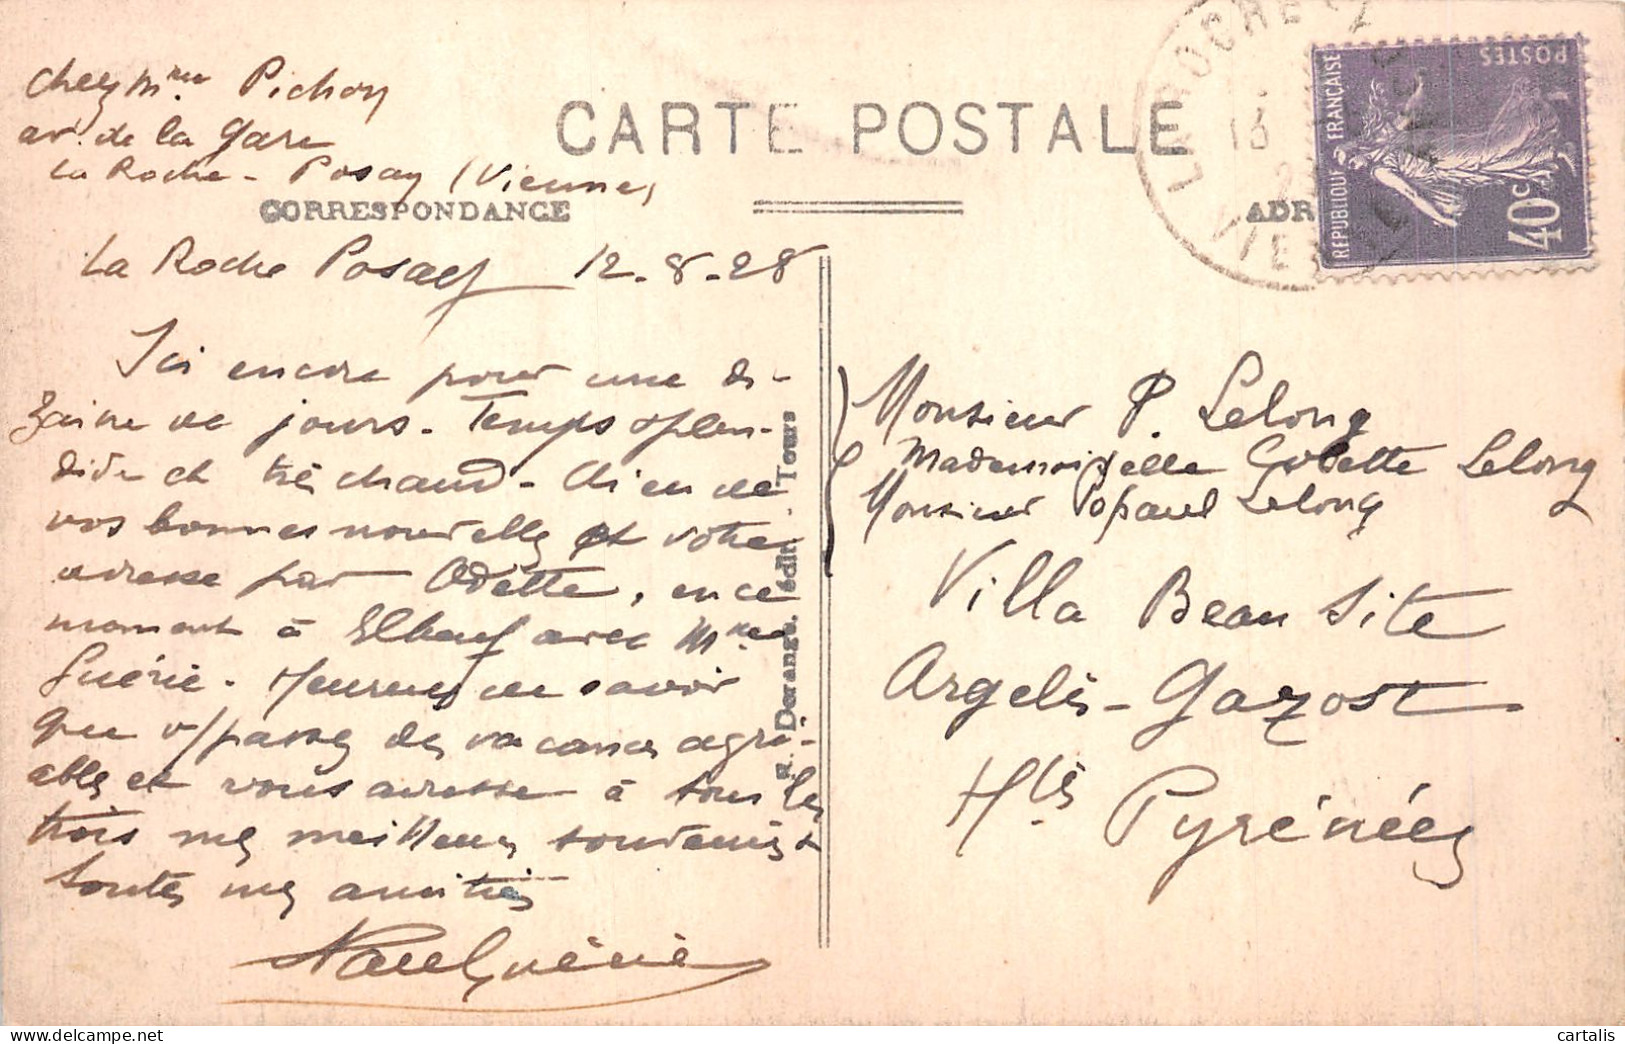 Chez Mme Pichon
av. de la Gare
La Roche-Posay (Vienne)
CARTE POSTALE
CORRESPONDANCE
ADR
LA ROCHE
VIENNE
REPUBLIQUE FRANÇAISE
POSTES
40c
La Roche Posay 12-8-28
Ici encore pour une di-
zaine de jours. Temps splen-
dide et très chaud.
vos bonnes nouvelles et votre
adresse par Odette, en ce
moment à Elbeuf avec Mme
Guérie. Heureux de savoir
que v/passez des vacances agré-
ables et vous adresse à tous les
trois mes meilleurs souvenirs &
toutes mes amitiés
Paul Guérie
R. Dorange, édit., Tours
Monsieur P. Lelong
Mademoiselle Colette Lelong
Monsieur Popaul Lelong
Villa Beau Site
Argelès-Gazost
Htes Pyrénées
cartalis